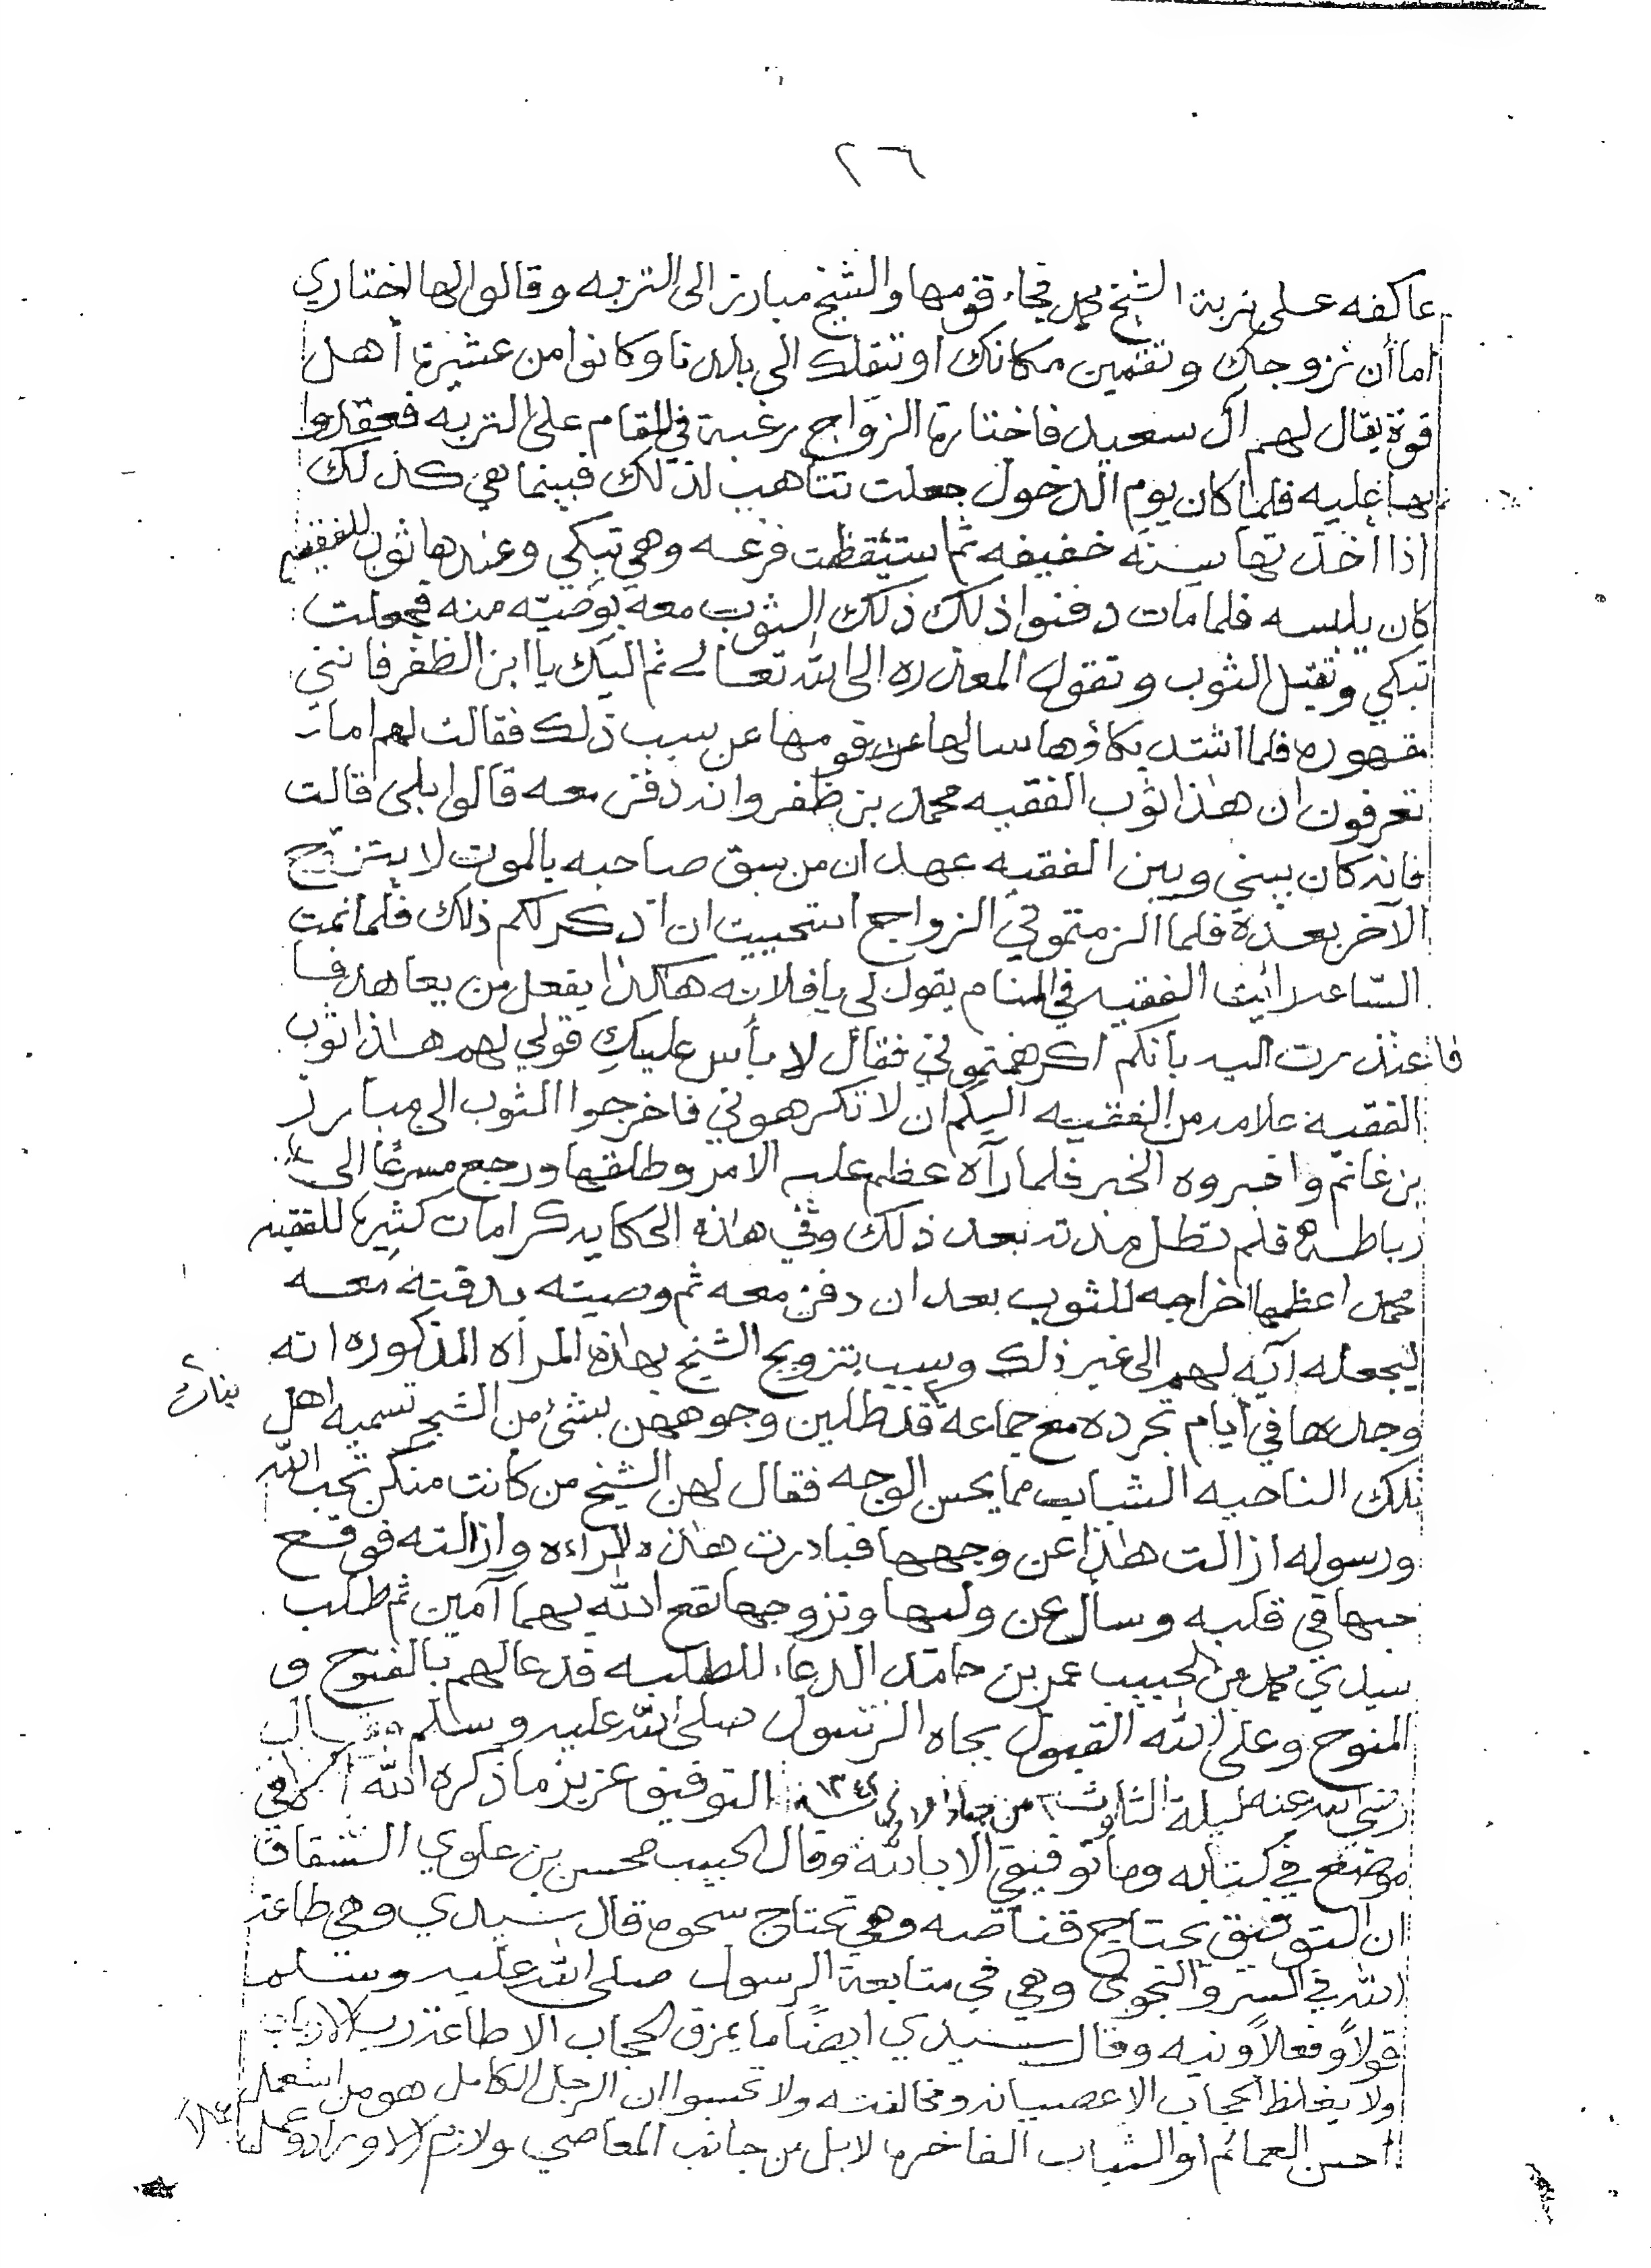 ٢٦
عاكفه على تربة الشيخ محمد فجاء قومها والشيخ مبارز الى التربه وقالوا لها اختاري
اما أن نزوجك وتقمين مكانك او تنقلك الى بالدنا وكانوا من عشيرة أهل
قوة يقال لهم آل سعيد فاختارة الزواج رغبة في المقام على التربه فعقدوا
بها عليه فلما كان يوم الدخول جعلت تتأهب لذلك فبينما هي كذلك
اذا أخذتها سِنَة خفيفه ثم استيقظت فزعه وهي تبكي وعندها ثوب للفقيه
كان يلبسه فلما مات دفنوا ذلك ذلك الثوب معه بوصيّته منه فجعلت
تبكي وتقبّل الثوب وتقول المعذره الى الله تعالى ثم اليك يا ابن الظفر فانني
مقهوره فلما اشتد بكاؤها سالها عن قومها عن سبب ذلك فقالت لهم اما
تعرفون ان هذا ثوب الفقيه محمد بن ظفر وانه دفن معه قالوا بلى قالت
فانه كان بيني وبين الفقيه عهد ان من سبق صاحبه بالموت لا يتزوج
الآخر بعده فلما الزمتموني الزواج استحييت ان اذكر لكم ذلك فلما نمت
السّاعه رائيت الفقيه في المنام يقول لي يا فلانه هاكذا يفعل من يعاهد فـا
فاعتذرت اليه بأنكم اكرهتموني فقال لا بأس عليكِ قولي لهم هذا ثوب
الفقيه علامه من الفقيه اليكم ان لا تكرهوني فاخرجوا الثوب الى مبارز
بن غانم واخبروه الخبر فلما رآه عظم عليه الامر وطلقها ورجع مسرعًا الى
رباطه فلم تطل مدته بعد ذلك وفي هذه الحكايه كرامات كثيره للفقيه
محمد اعظمها اخراجه للثوب بعد ان دفن معه ثم وصيته بدفنه معه
ليجعله آيه لهم الى غير ذلك وسبب تزويج الشيخ بهذه المراه المذكوره انه
وجدها في أيام تجرده مع جماعة قد طلين وجوههن بشئ من الشجر تسميه اهل
بنات
تلك الناحيه الشباب مما يحسن الوجه فقال لهن الشيخ من كانت منكن تحب الله
ورسوله ازالت هذا عن وجهها فبادرت هذه المراءه وازالته فوقع
حبها في قلبه وسأل عن وليها وتزوجها نفع الله بهما آمين ثم طلب
سيدي محمد من الحبيب عمر بن حامد الدعاء للطلبه فدعا لهم بالفتوح و
المنوح وعلى الله القبول بجاه الرسول صلى الله عليه وسلم وقال
رضي الله عنه ليلة الثلوث من جماد الاولى سنة ١٣٤٤ التوفيق عزيز ما ذكره الله الا في
موضع في كتابه وما توفيقي الا بالله وقال الحبيب محسن بن علوي السقاف
ان التوفيق يحتاج قناصه وهي تحتاج سحوه قال سيدي وهي طاعة
الله في السر والنجوى وهي في متابعة الرسول صلى الله عليه وسلم
قولاً وفعلاً ونيه وقال سيدي ايضًا ما يمزق الحجاب الا طاعة رب الارباب
ولا يغلظ الحجاب الا عصيانه ومخالفته ولا تحسبوا ان الرجل الكامل هو من استعمل
احسن العمائم او الثياب الفاخره لا بل من جانب المعاصي ولازم الاوراد وعمل